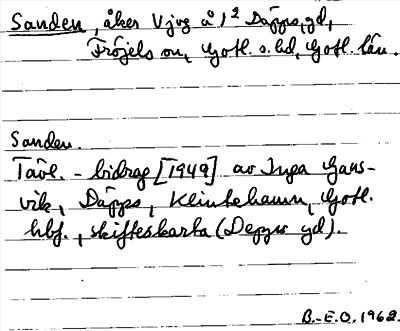 Sanden, åker V jvg å 1² Däpps, gd,
Fröjels sn, Gotl. s. hd, Gotl. län.
Sanden.
Tävl. - bidrag [1949] av Inga Gans-
vik, Däpps, Klintehamn, Gotl.
hbf., skifteskarta (Depps gd).
B.-E.O. 1962.